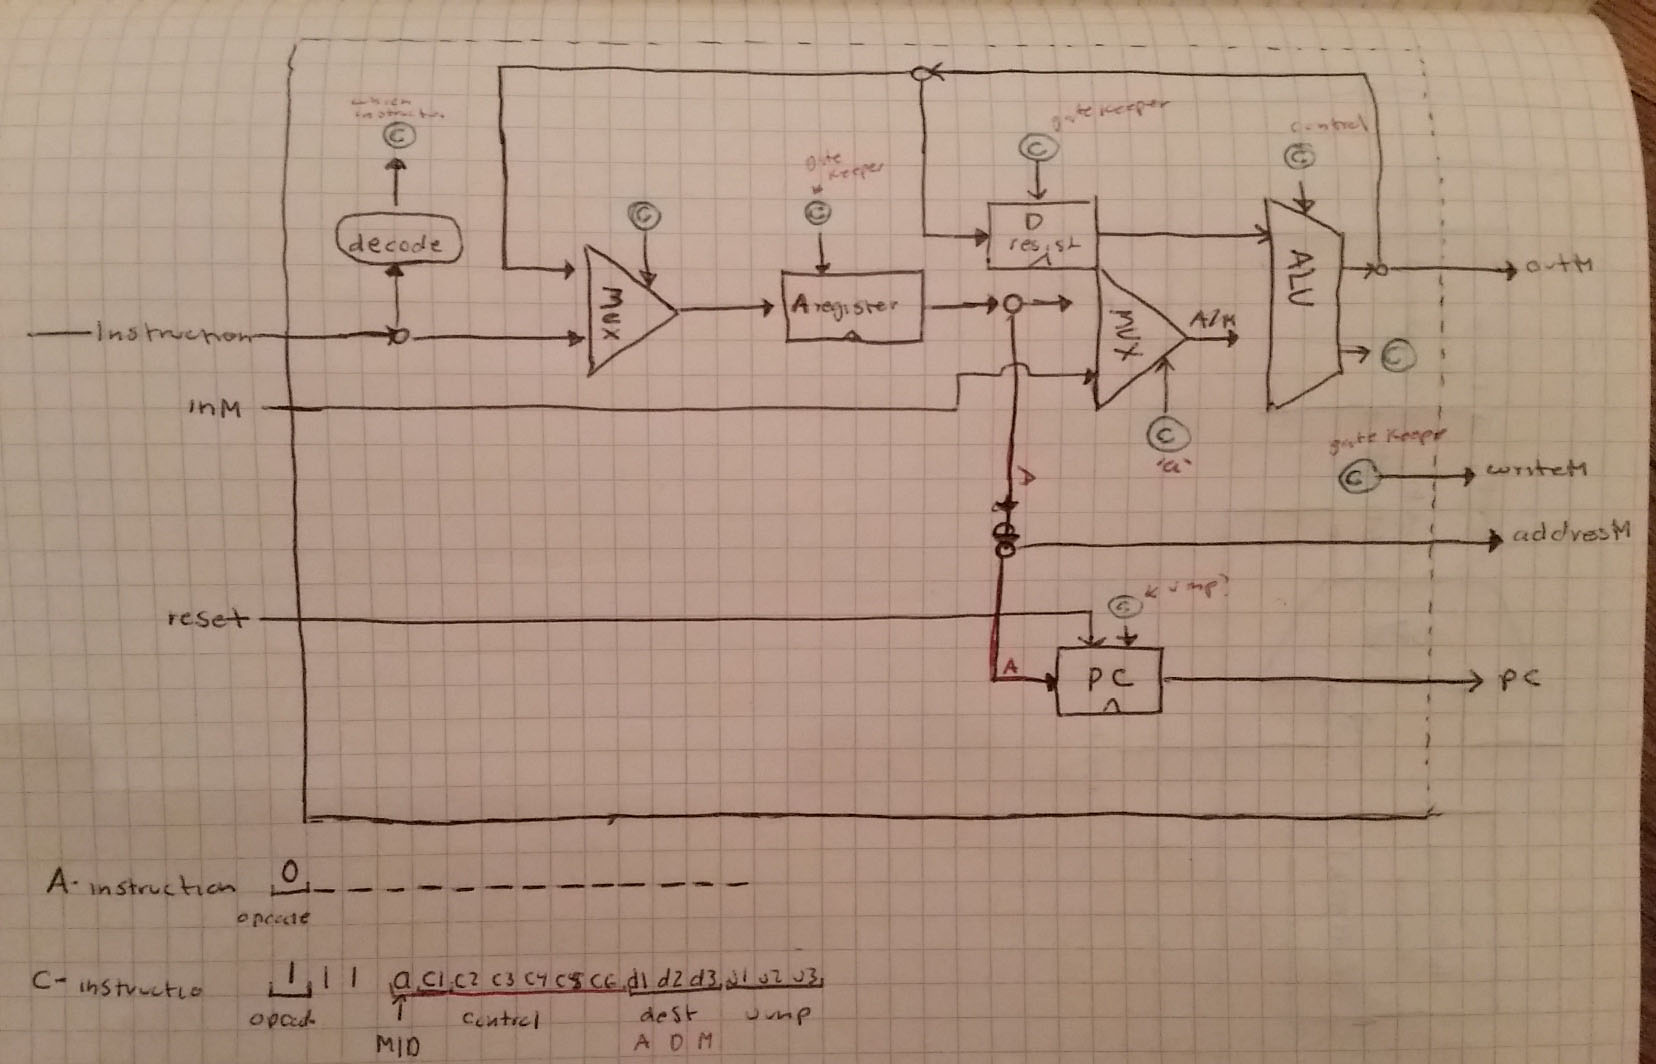 which
instruction
C
decode
Instruction
inM
reset
C
MUX
gate
keeper
C
A register
gate keeper
C
D
regist
MUX
A/M
C
"a"
control
C
ALU
outM
C
gate keepe
C
writeM
A
addressM
C
A
PC
PC
A-instruction 0
opcode
C-instructio 1 1 1 a c1 c2 c3 c4 c5 c6 d1 d2 d3 j1 j2 j3
opcode control dest jump
A D M